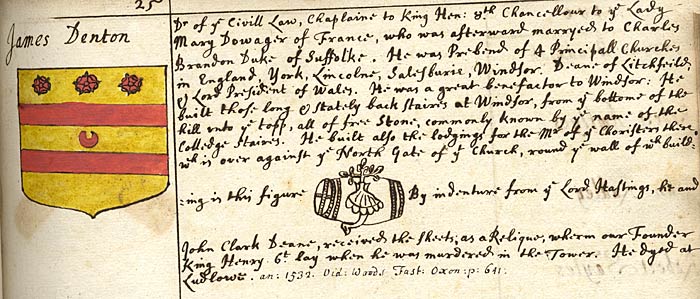 25
James Denton
Dr of ye Civill Law, Chaplaine to King Hen: 8th Chancellour to ye Lady
Mary Dowager of France, who was afterward marryed to Charles
Brandon Duke of Suffolke. He was Prebend of 4 Principall Churches
in England, York, Lincolne, Salesburie, Windsor. Deane of Litchfeild
& Lord President of Wales. He was a great benefactor to Windsor: He
built those long & stately back staires at Windsor, from ye bottome of the
hill unto ye topp, all of free Stone, commonly known by ye name of the
Colledge Staires. He built also the lodgings for the Mr of ye Choristers there
wch is over against ye North Gate of ye Church, round ye wall of wch build-
-ing is this figure
By indenture from ye Lord Hastings, he and
John Clark Deane, received the sheets, as a Relique, wherin our Founder
King Henry 6t lay when he was murdered in the Tower. He dyed at
Ludlowe. an: 1532. Vid: Woods Fast: Oxon: p: 641.